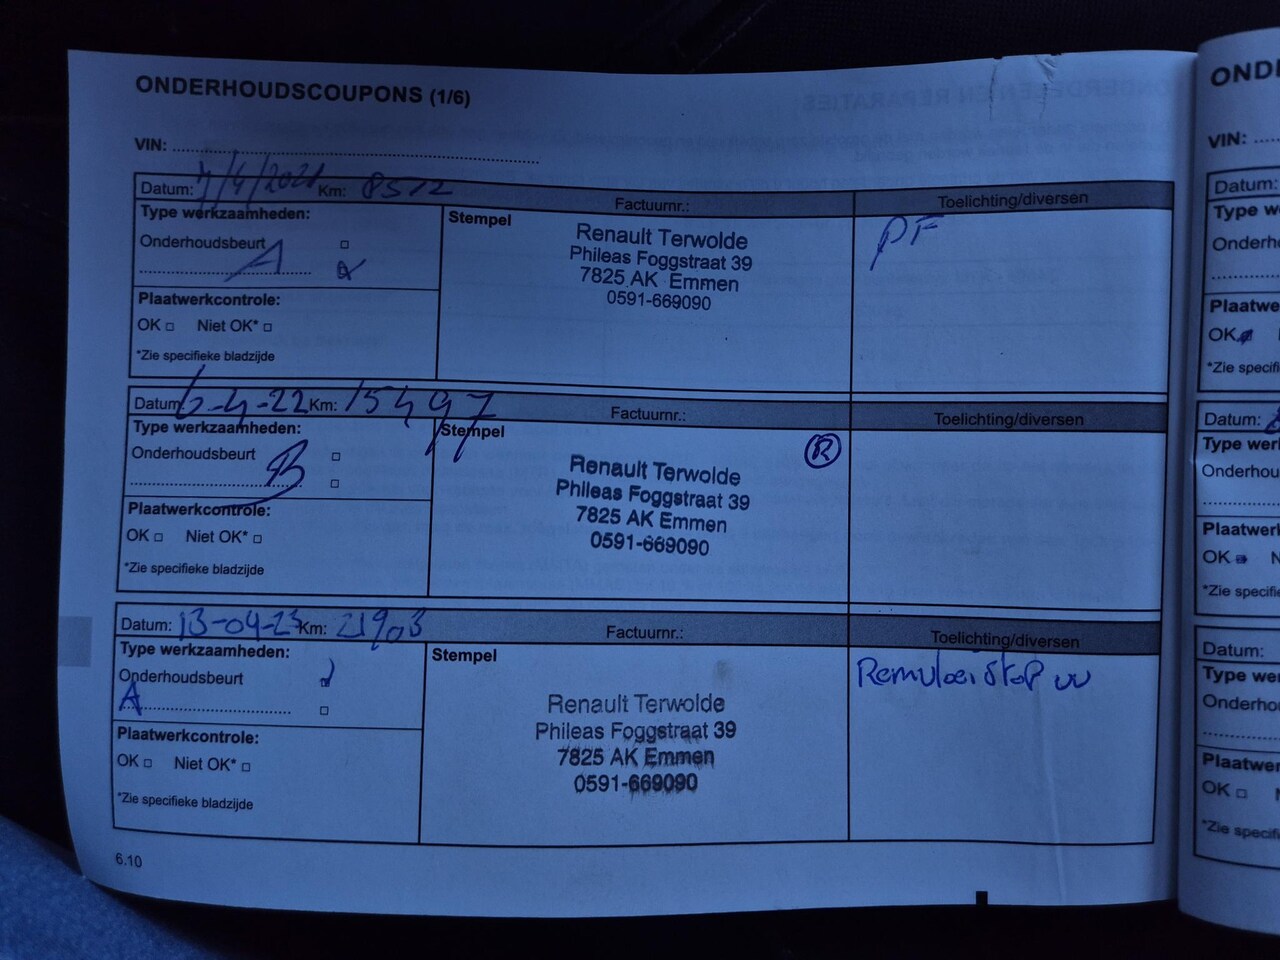 ONDERHOUDSCOUPONS (1/6)
VIN:
Datum: 7/4/2021 Km: 8572 Factuurnr.: Toelichting/diversen
Type werkzaamheden:
Onderhoudsbeurt
A
Plaatwerkcontrole:
OK Niet OK*
*Zie specifieke bladzijde
Stempel
Renault Terwolde
Phileas Foggstraat 39
7825 AK Emmen
0591-669090
PF
Datum: 6-4-22 Km: 15497 Factuurnr.: Toelichting/diversen
Type werkzaamheden:
Onderhoudsbeurt
B
Plaatwerkcontrole:
OK Niet OK*
*Zie specifieke bladzijde
Stempel
R
Renault Terwolde
Phileas Foggstraat 39
7825 AK Emmen
0591-669090
Datum: 13-04-23 Km: 21903 Factuurnr.: Toelichting/diversen
Type werkzaamheden:
Onderhoudsbeurt
A
Plaatwerkcontrole:
OK Niet OK*
*Zie specifieke bladzijde
Stempel
Renault Terwolde
Phileas Foggstraat 39
7825 AK Emmen
0591-669090
Remvloeistof vv
6.10
OND
VIN:
Datum:
Type w
Onderh
Plaatw
OK
*Zie specif
Datum:
Type wer
Onderhou
Plaatwer
OK N
*Zie specifi
Datum:
Type werk
Onderho
Plaatwer
OK
*Zie specifi